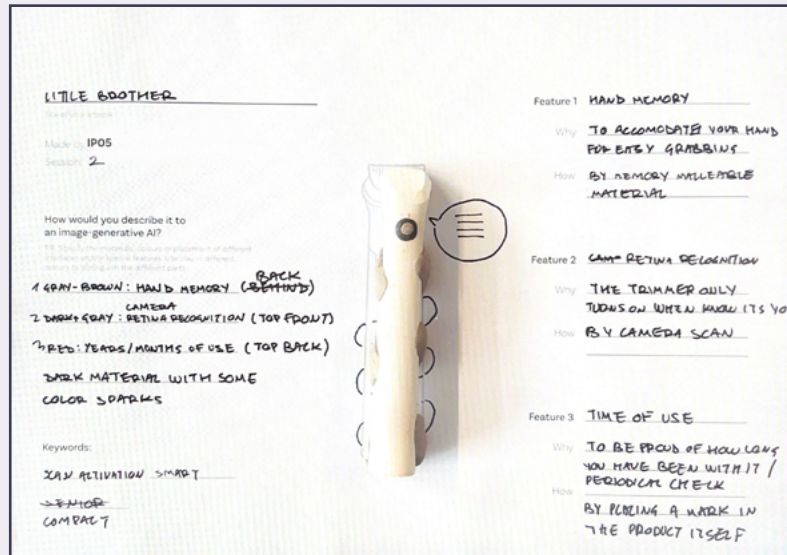 LITTLE BROTHER
Made by IP05
Session: 2
How would you describe it to
an image-generative AI?
1 GRAY-BROWN: HAND MEMORY (BEHIND) BACK
2 DARK GRAY: CAMERA RETINA RECOGNITION (TOP FRONT)
3 RED: YEARS/MONTHS OF USE (TOP BACK)
DARK MATERIAL WITH SOME
COLOR SPARKS
Keywords:
SCAN ACTIVATION SMART
SENIOR
COMPACT
Feature 1 HAND MEMORY
Why TO ACCOMODATE YOUR HAND
FOR EASY GRABBING
How BY MEMORY MALLEABLE
MATERIAL
Feature 2 CAM RETINA RECOGNITION
Why THE TRIMMER ONLY
TURNS ON WHEN KNOW ITS YO
How BY CAMERA SCAN
Feature 3 TIME OF USE
Why TO BE PROUD OF HOW LONG
YOU HAVE BEEN WITH IT /
PERIODICAL CHECK
How BY PLACING A MARK IN
THE PRODUCT ITSELF